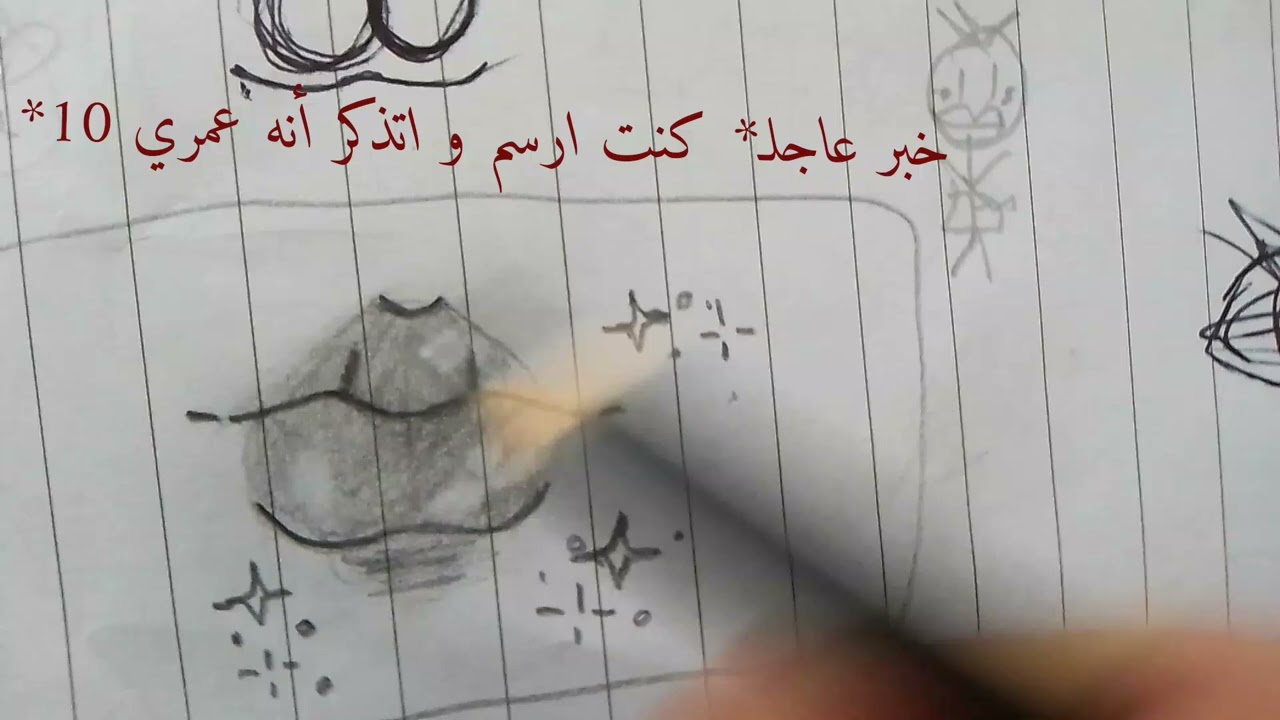 خبر عاجل* كنت ارسم و اتذكر أنه عمري 10*